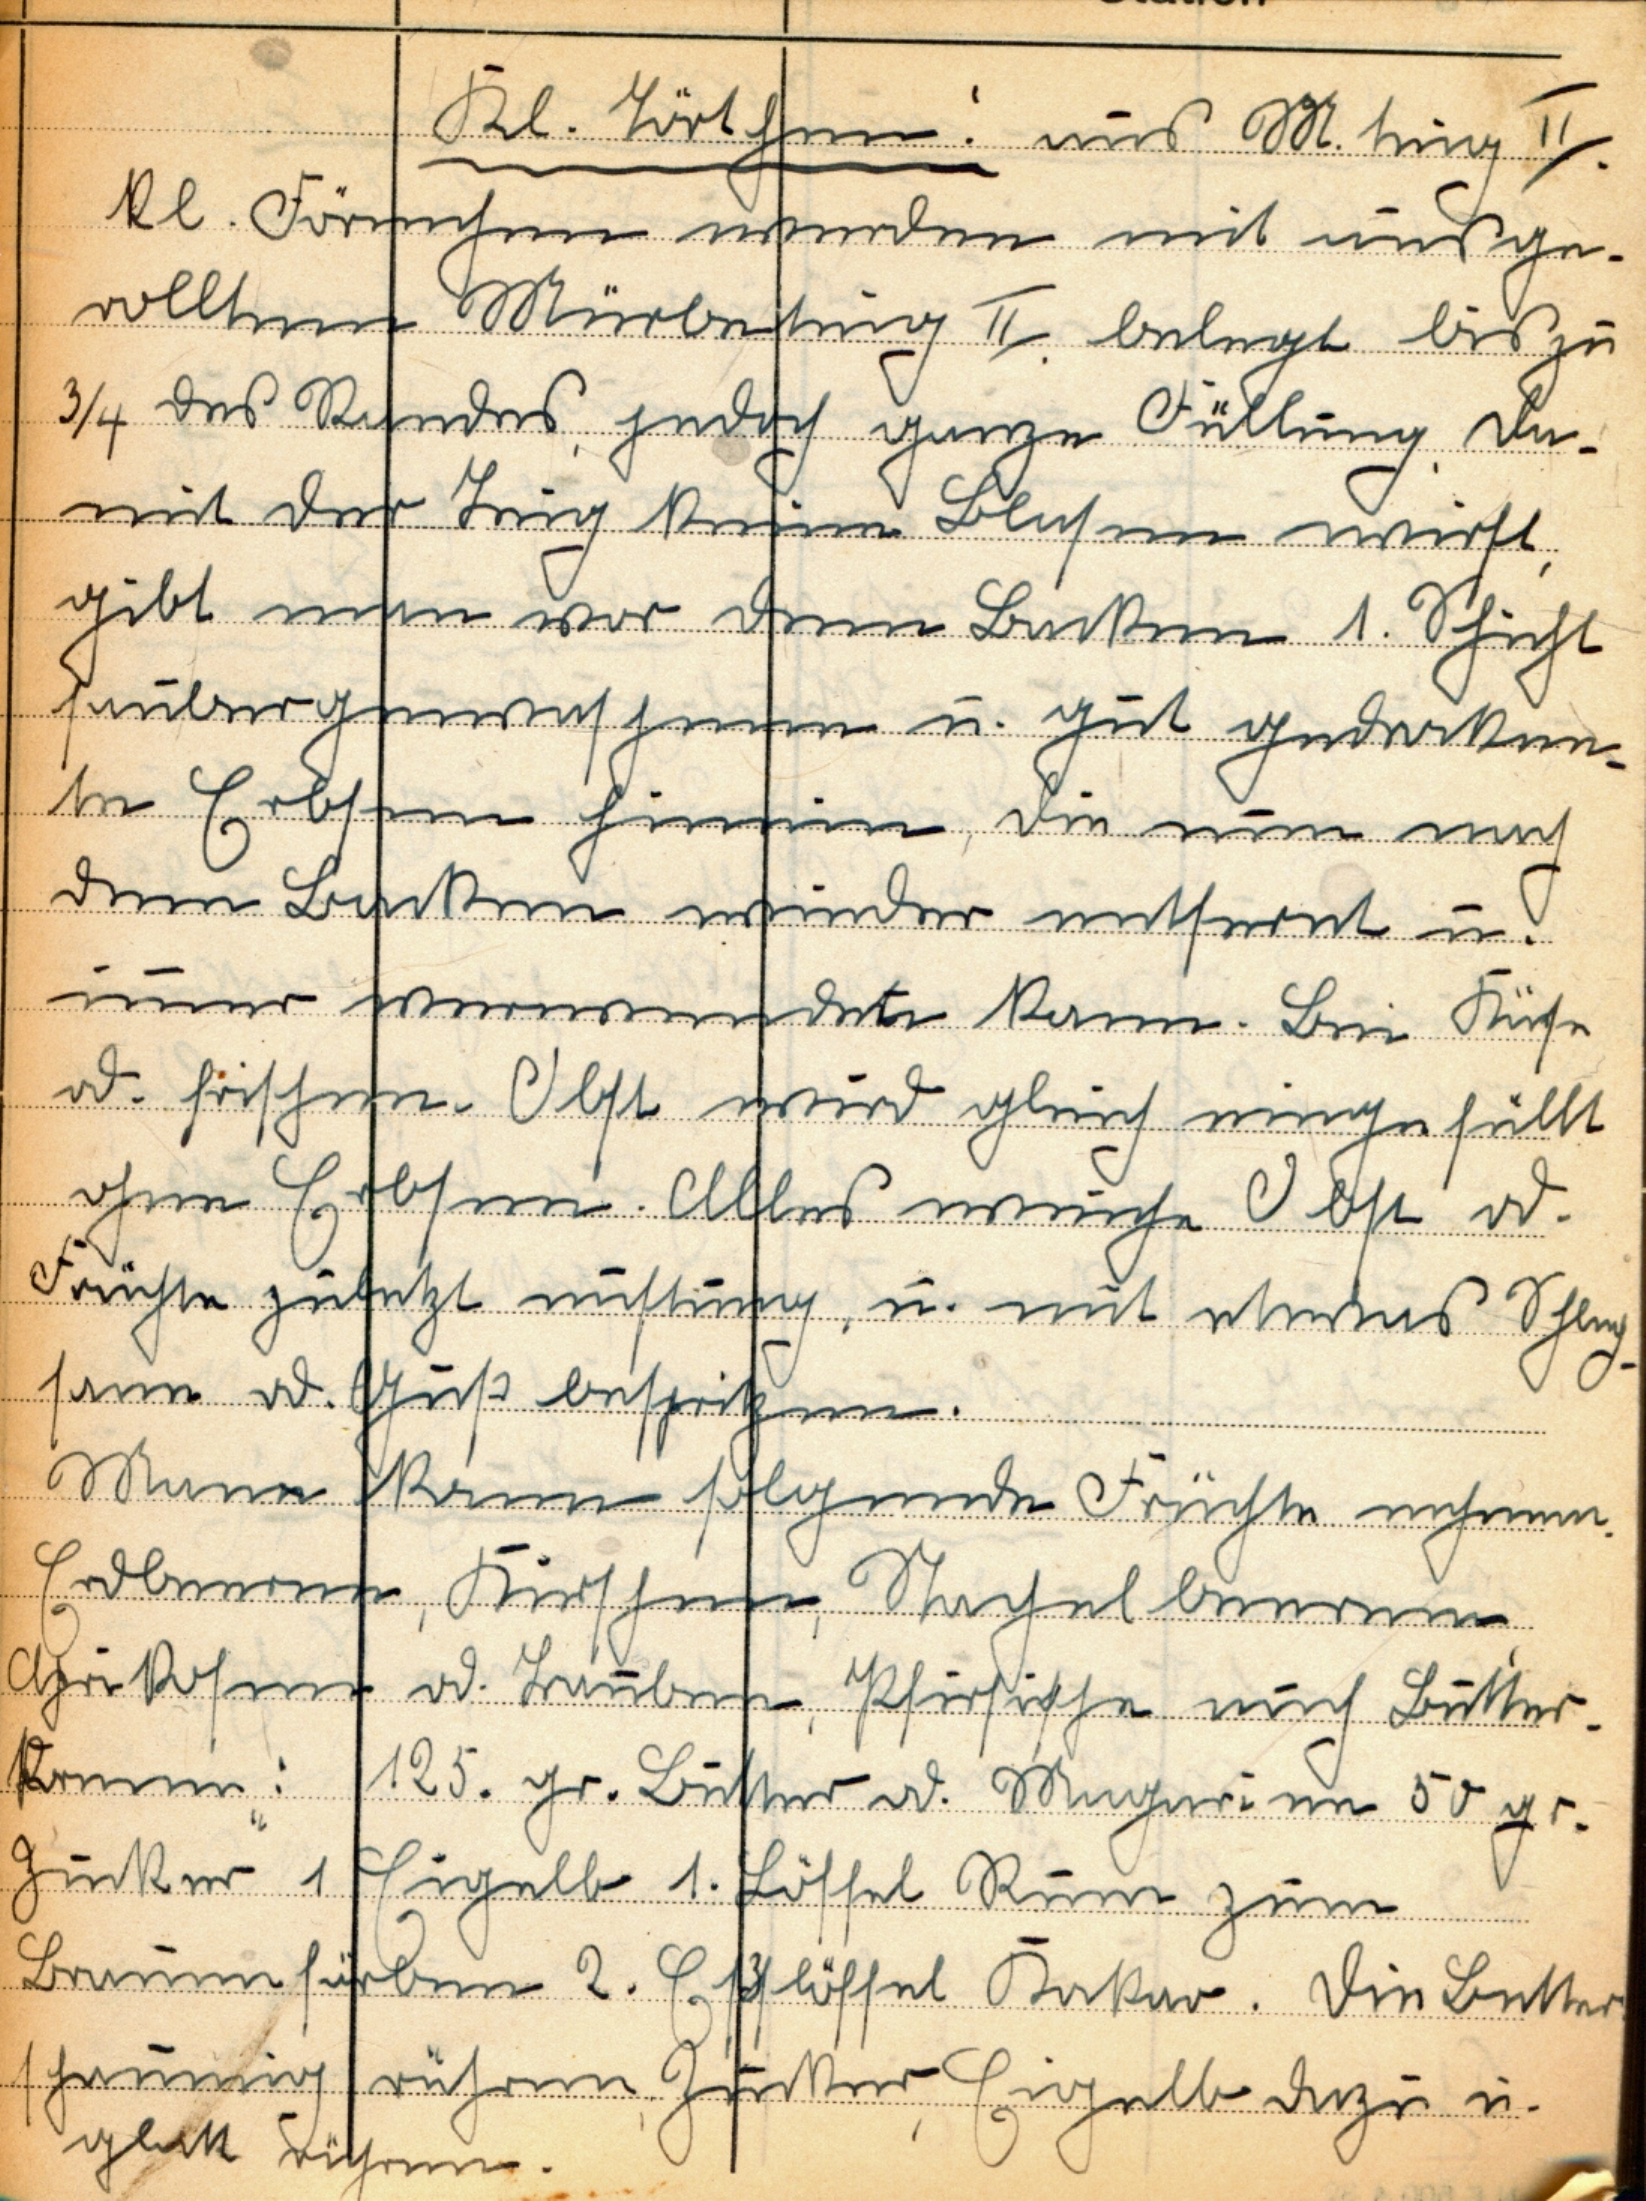 Station
Kl. Törtchen: aus M. teig II.
Kl. Förmchen werden mit ausge-
rollten Mürbeteig II. belegt bis zu
3/4 des Randes, jedoch ganze Füllung. Da-
mit der Teig keine Blasen wirft,
gibt man vor dem Backen 1. Schicht
saubergewaschene u. gut gedrockne-
te Erbsen hinein, die man nach
dem Backen wieder entfernt u.
immer verwendete kann. Bei Käse
od. frischen. Obst wird gleich eingefüllt
ohne Erbsen. Alles weiche Obst od.
Früchte zuletzt auf u. mit etwas Schlag-
sane od. Guß bespritzen.
Mann kann folgende Früchte nehmen.
Erdbeeren, Kirschen, Stachelbeeren,
Aprikosen od. Trauben, Pfirsische auch Butter-
kreme: 125. gr. Butter od. Magarine 50 gr.
Zucker 1 Eigelb 1. Löffel Rum zum
Braunfärben 2. Eßlöffel Kakao. Die Butter
schaumig rühren, Zucker, Eigelb dazu u.
glatt rühren.